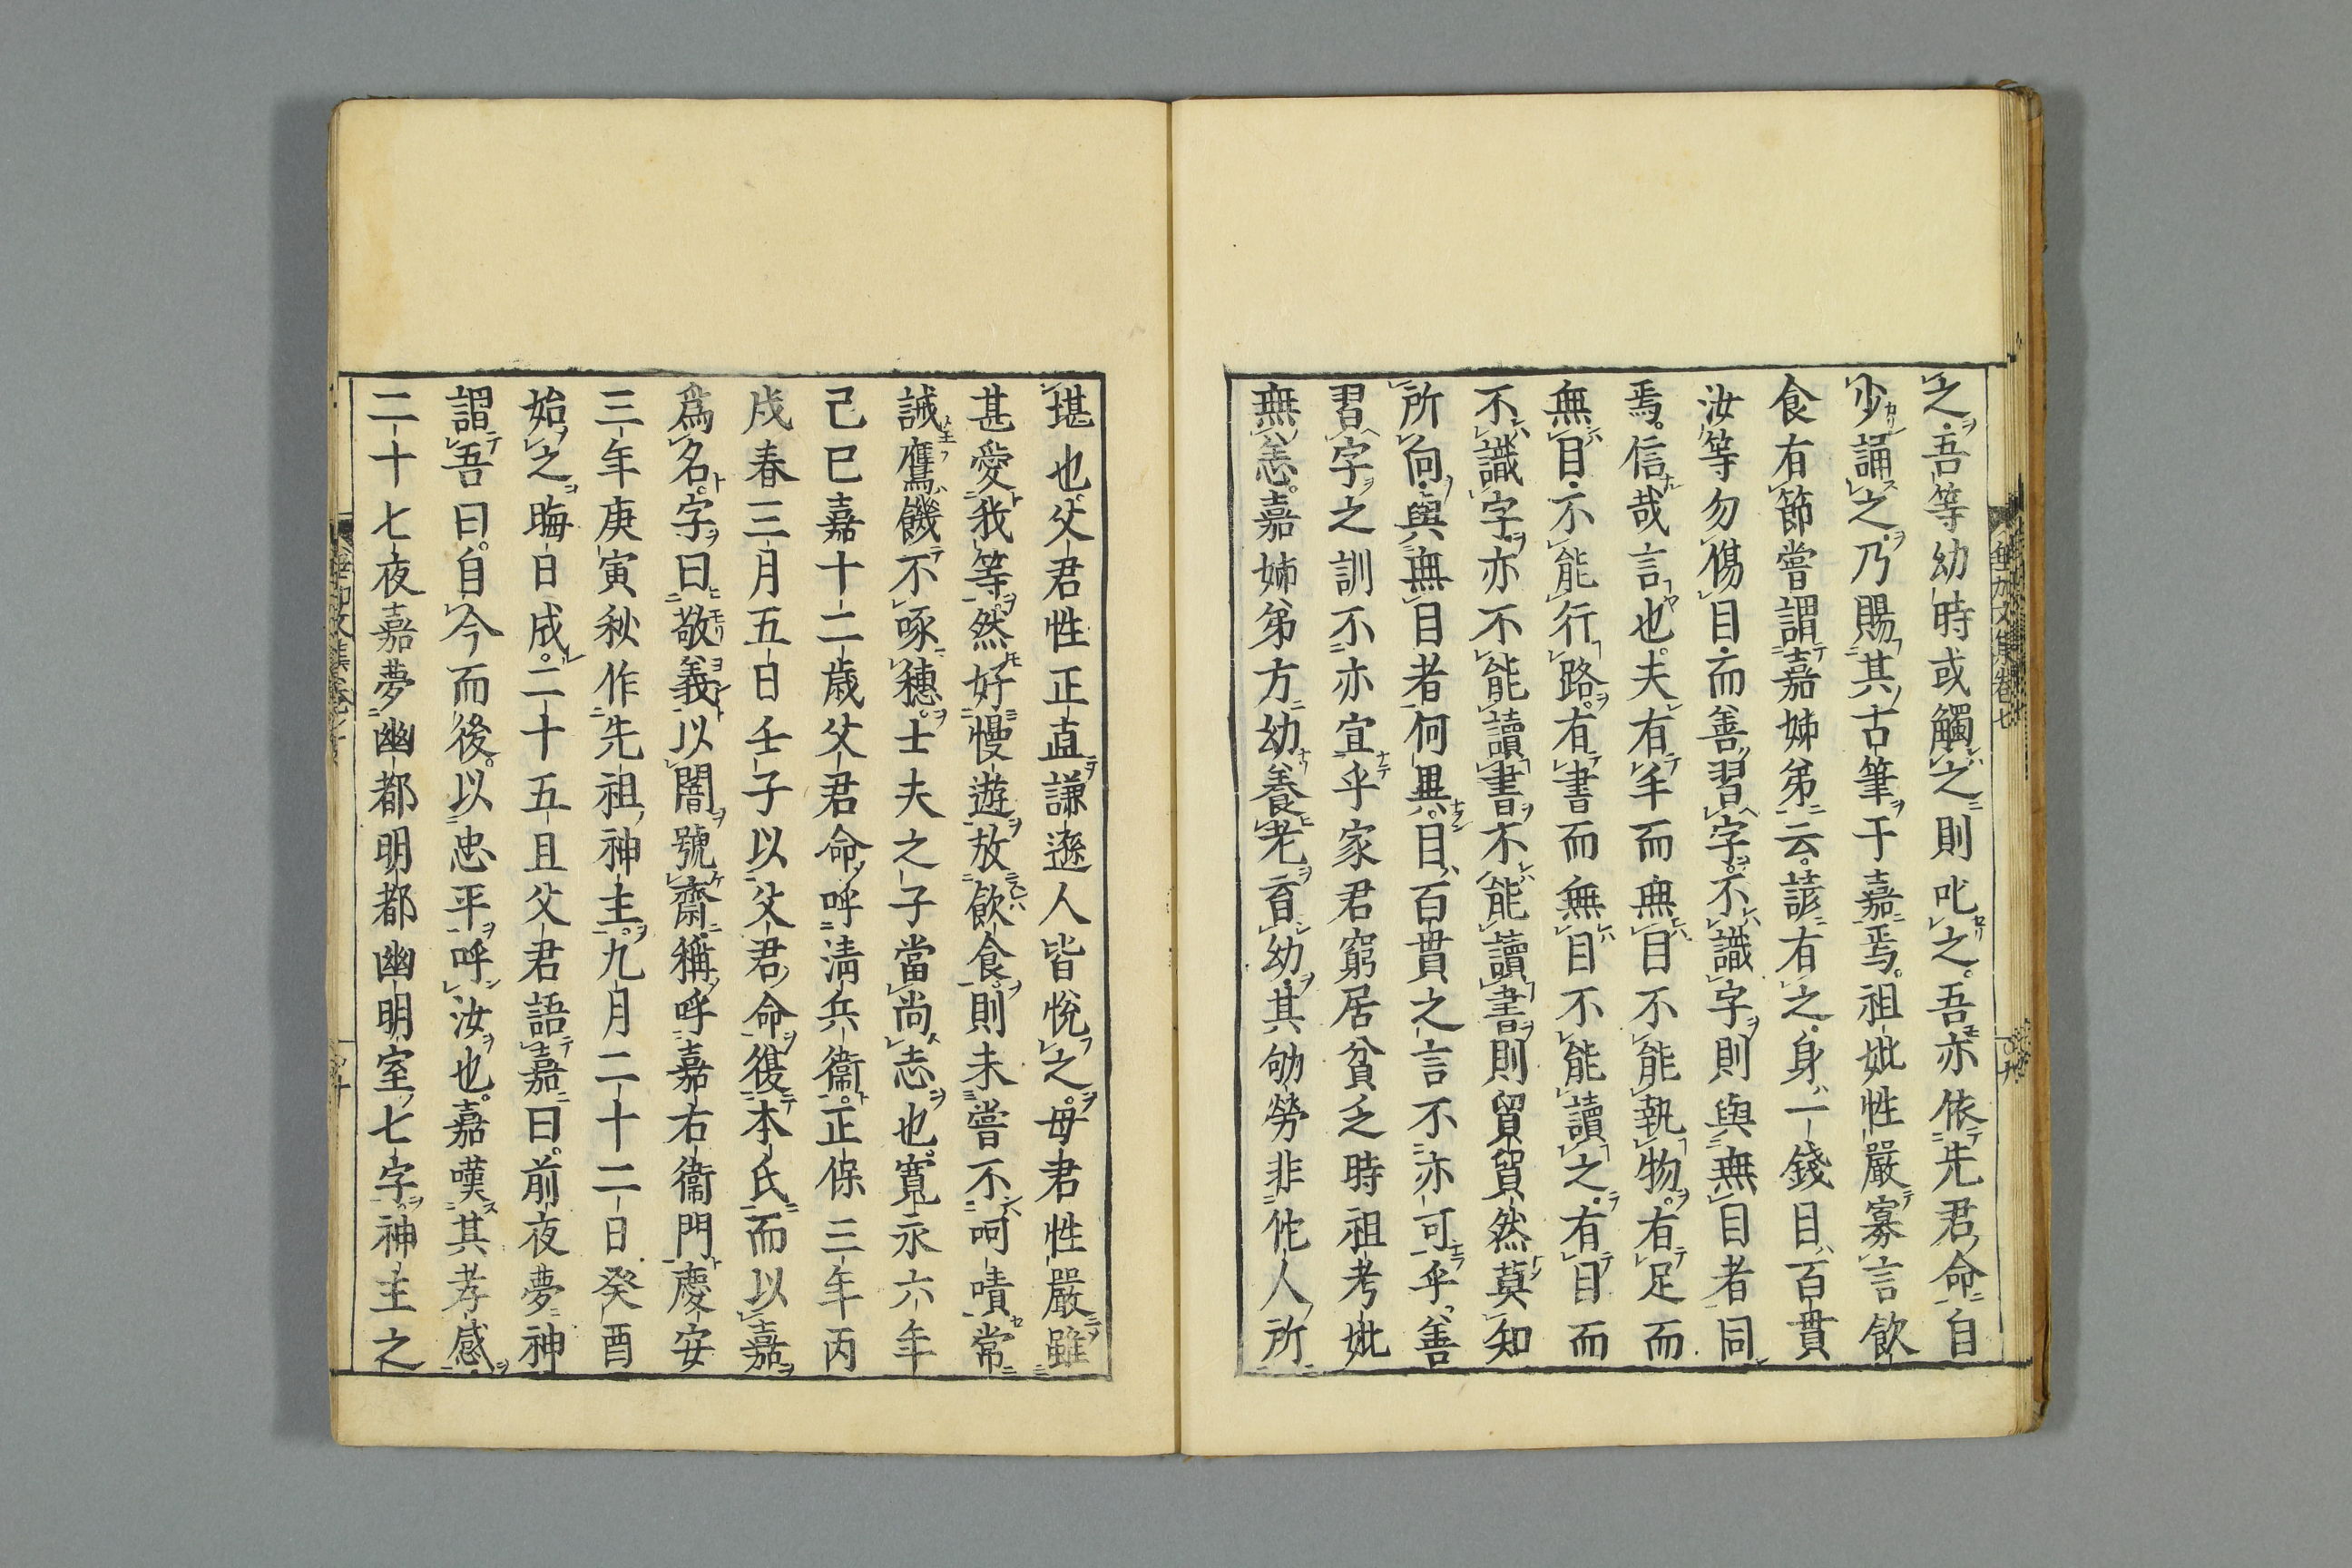 之吾等幼時或觸之則叱之吾亦依先君命自
少誦之乃賜其古筆于嘉焉祖妣性嚴寡言飲
食有節嘗謂嘉姊弟云諺有之身一錢目百貫
汝等勿傷目而善習字不識字則與無目者同
焉信哉言也夫有手而無目不能執物有足而
無目不能行路有書而無目不能讀之有目而
不識字亦不能讀書不能讀書則貿貿然莫知
所向與無目者何異目百貫之言不亦可乎善
習字之訓不亦宜乎家君窮居貧乏時祖考妣
無恙嘉姊弟方幼養老育幼其劬勞非佗人所
堪也父君性正直謙遜人皆悅之母君性嚴雖
甚愛我等然好慢遊放飲食則未嘗不呵嘖常
誡鷹饑不啄穗士夫之子當尚志也寬永六年
己巳嘉十二歲父君命呼淸兵衞正保三年丙
戌春三月五日壬子以父君命復本氏而以嘉
爲名字曰敬義以闇號齋稱呼嘉右衞門慶安
三年庚寅秋作先祖神主九月二十二日癸酉
始之晦日成二十五且父君語嘉曰前夜夢神
謂吾曰自今而後以忠平呼汝也嘉嘆其孝感
二十七夜嘉夢幽都明都幽明室七字神主之